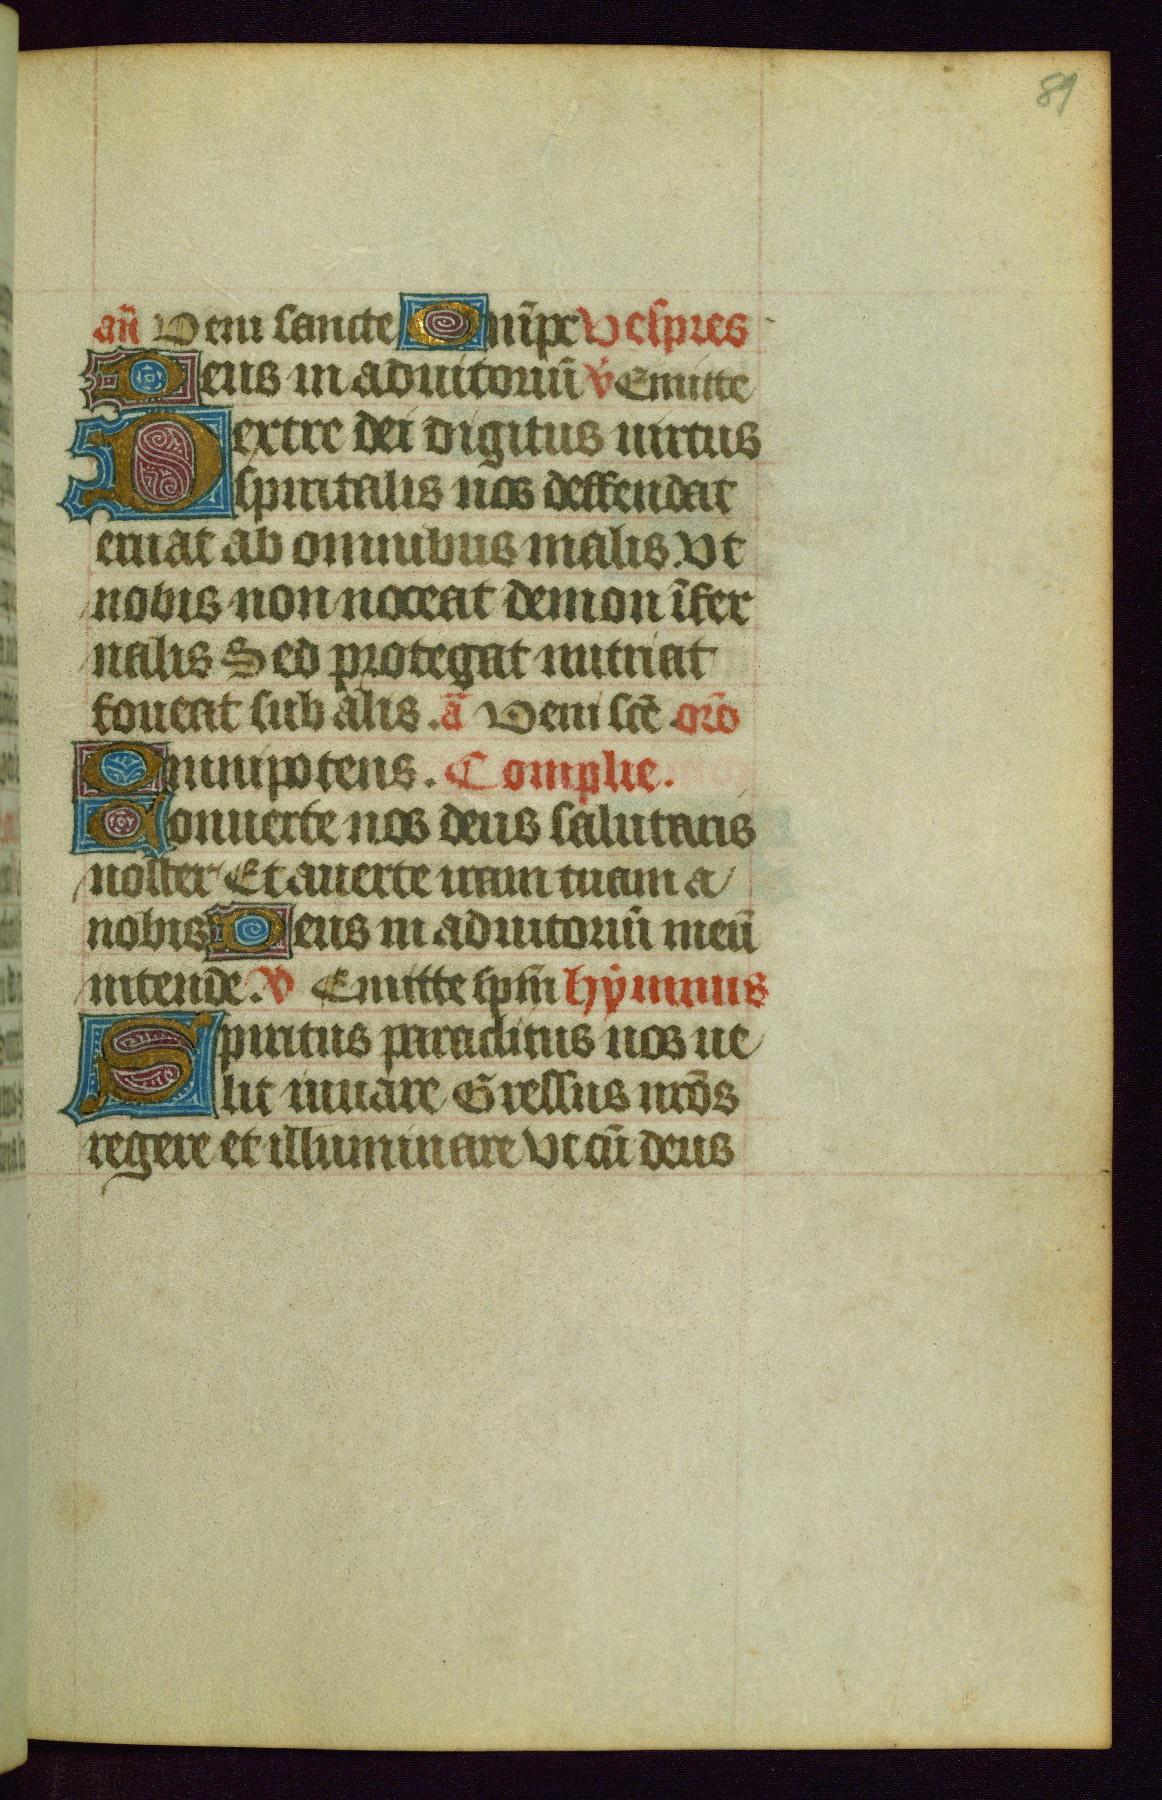 89
an̄ Veni sancte Omīpe Vespres
Deus in adiutoriū v̄ Emitte
Dextre dei digitus uirtus
spiritalis nos deffendat
eruat ab omnibus malis. Vt
nobis non noceat demon īfer
nalis Sed protegat nutriat
foueat sub alis. ā Veni scē orō
Omnipotens. Complie.
Conuerte nos deus salutaris
noster Et auerte iram tuam a
nobis Deus in adiutoriū meū
intende. V Emitte spm̄ hẏmnus
Spiritus paraclitus nos ue
lit iuuare Gressus nrōs
regere et illuminare Vt cū deus